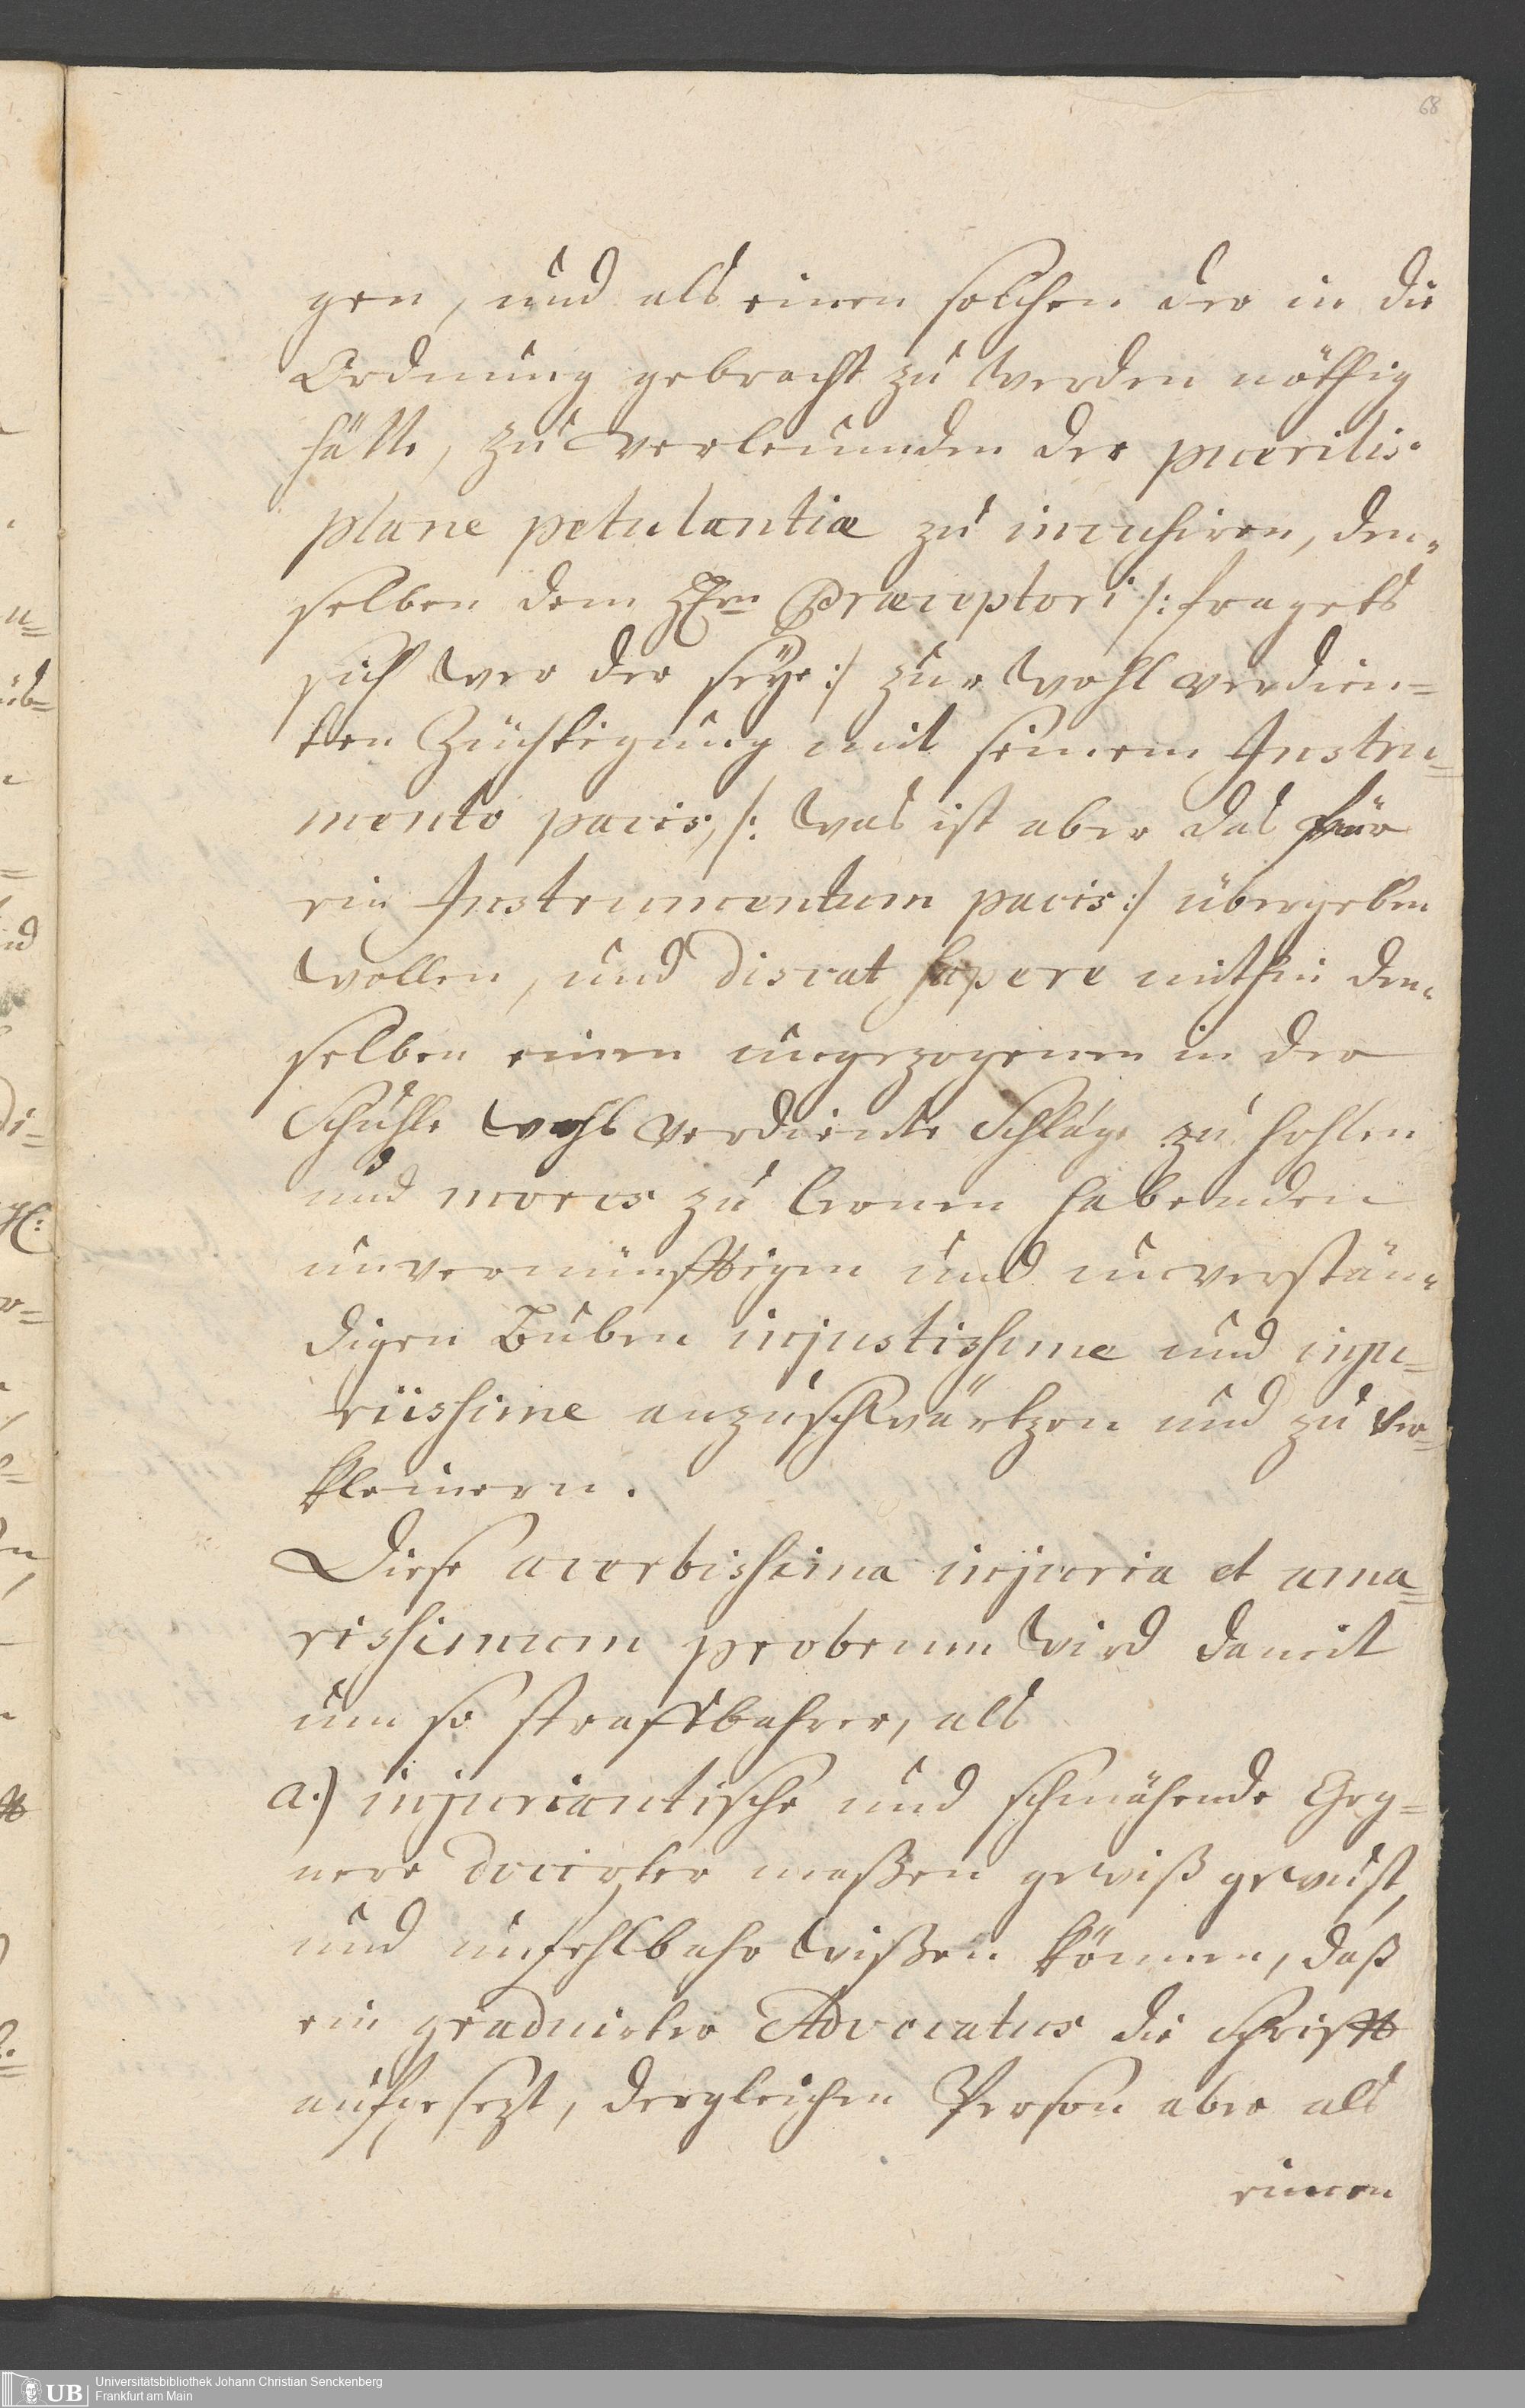 68
gen, und als einen solchen der in die
Ordnung gebracht zu werden nöthig
hätte, zu verleumden der puerilis
plane petulantiæ zu incusiren, den„
selben dem Hhrn Præceptori /: fragets
sich wer der seye :/ zur wohl verdien=
ten Züchtigung mit seinem Instru=
mento pacis, /: was ist aber das für
ein Instrumentum pacis :/ übergeben
wollen, und discat sapere mithin den„
selben einen ungezogenen in der
Schuhle wohl verdiente Schläge zu hohlen
und mores zu lernen habenden
unvernünfftigen und unverstän„
digen Buben injustissime und inju=
riissime anzuschwärtzen und zu ver=
kleinern.
Diese acerbissima injuria et ama=
rissimum probrum wird damit
um so straffbahrer, als
a.) injuriantische und schmähende Geg=
nere docirter maßen gewiß gewust,
und unfehlbahr wißen können, daß
ein graduirter Advocatus die Schrifft
aufgesezt, dergleichen Person aber als
einen
UB
Universitätsbibliothek Johann Christian Senckenberg
Frankfurt am Main